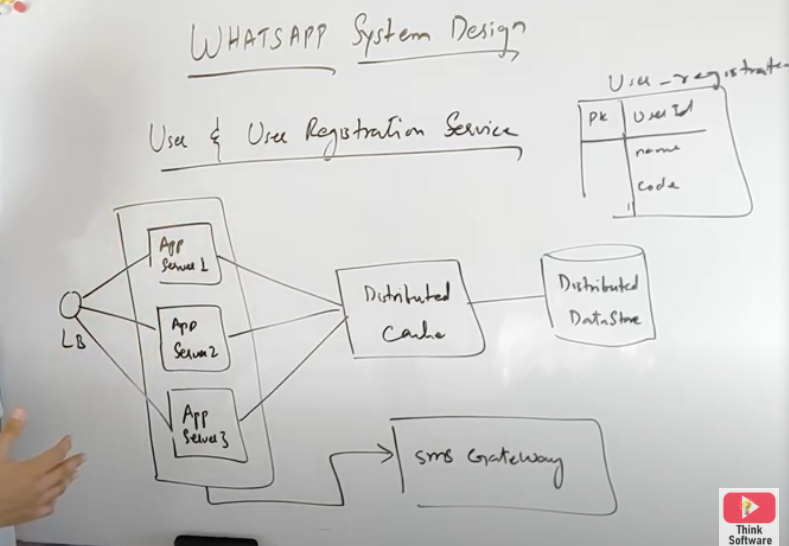 WHATSAPP System Design
User & User Registration Service
User_registration
PK UserId
name
code
App
Server 1
App
Server2
App
Server3
LB
Distributed
Cache
Distributed
DataStore
SMS Gateway
Think
Software